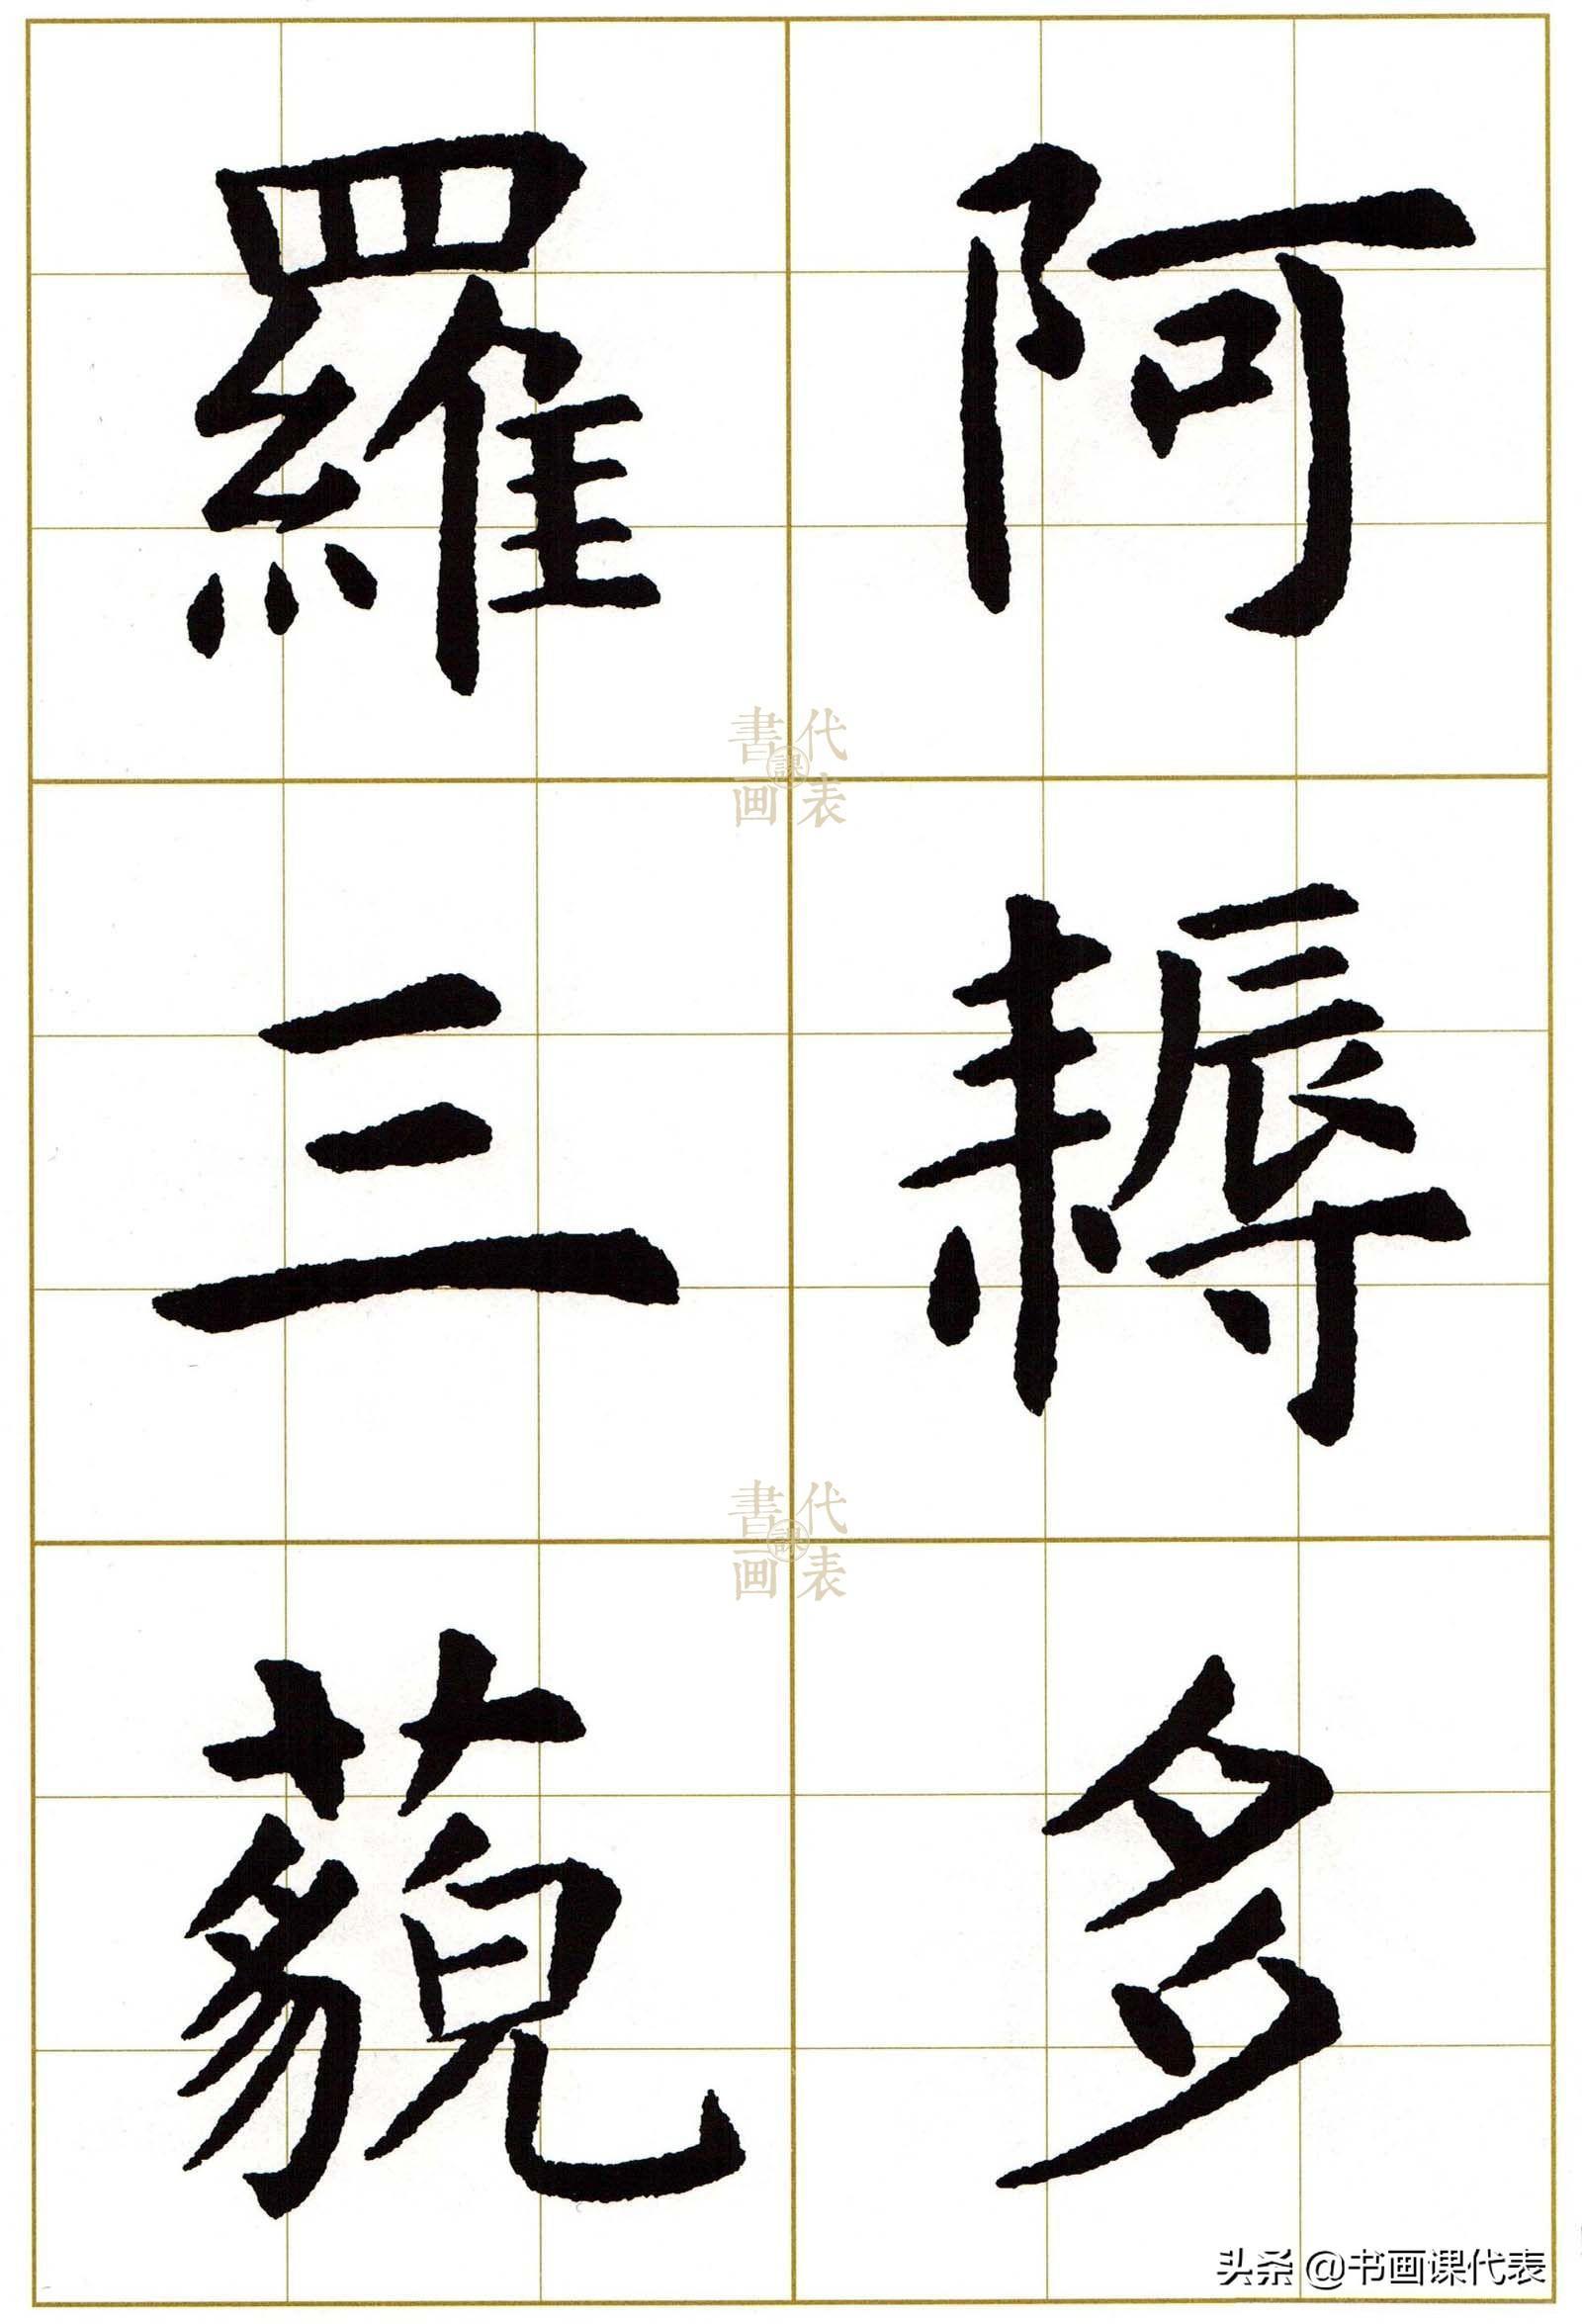 阿耨多
羅三藐
書画課代表
書画課代表
头条 @书画课代表